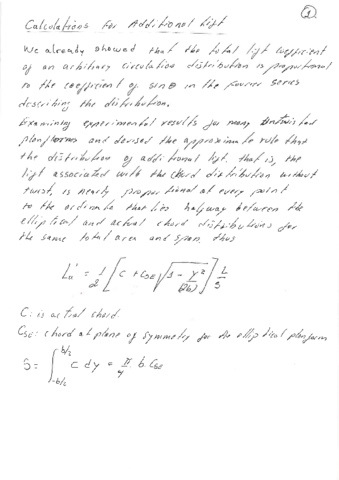 ①
Calculations for Additional Lift
We already showed that the total lift coefficient
of an arbitrary circulation distribution is proportional
to the coefficient of sin θ in the Fourier series
describing the distribution.
Examining experimental results for many untwisted
planforms and devised the approximate rule that
the distribution of additional lift, that is, the
lift associated with the chord distribution without
twist, is nearly proportional at every point
to the ordinate that lies halfway between the
elliptical and actual chord distributions for
the same total area and span, thus
L'a = 1/2 [ C + CSE √(1 - y²/(2b)) ] L/S
C: is actual chord.
CSE: chord at plane of symmetry for the elliptical planform
S = ∫_{-b/2}^{b/2} C dy = π/4 b CSE